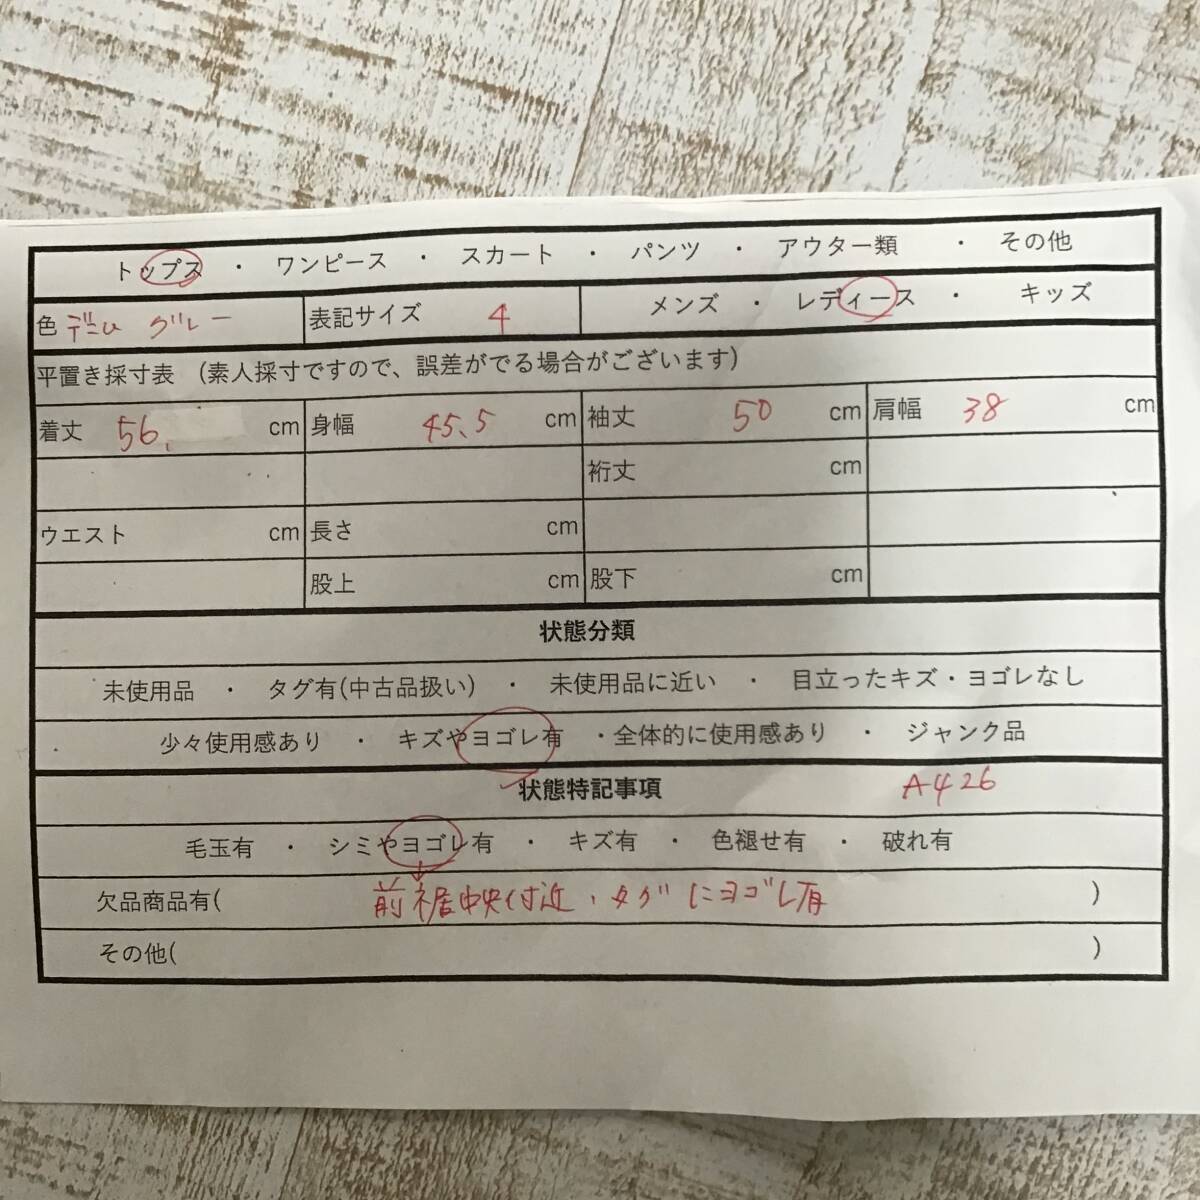 トップス ・ ワンピース ・ スカート ・ パンツ ・ アウター類 ・ その他
色 グレー 表記サイズ 4 メンズ ・ レディース ・ キッズ
平置き採寸表 (素人採寸ですので、誤差がでる場合がございます)
着丈 56. cm 身幅 45.5 cm 袖丈 50 cm 肩幅 38 cm
裄丈 cm
ウエスト cm 長さ cm
股上 cm 股下 cm
状態分類
未使用品 ・ タグ有(中古品扱い) ・ 未使用品に近い ・ 目立ったキズ・ヨゴレなし
少々使用感あり ・ キズやヨゴレ有 ・全体的に使用感あり ・ ジャンク品
状態特記事項 A426
毛玉有 ・ シミやヨゴレ有 ・ キズ有 ・ 色褪せ有 ・ 破れ有
欠品商品有( 前裾中央付近、タグにヨゴレ有 )
その他( )